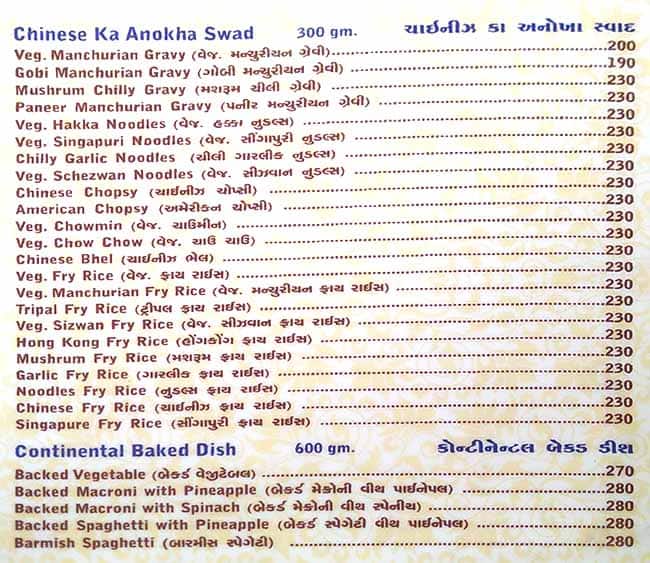 Chinese Ka Anokha Swad 300 gm. ચાઈનીઝ કા અનોખા સ્વાદ
Veg. Manchurian Gravy (વેજ. મન્ચુરીયન ગ્રેવી)....200
Gobi Manchurian Gravy (ગોબી મન્ચુરીયન ગ્રેવી)....190
Mushrum Chilly Gravy (મશરૂમ ચીલી ગ્રેવી)....230
Paneer Manchurian Gravy (પનીર મન્ચુરીયન ગ્રેવી)....230
Veg. Hakka Noodles (વેજ. હક્કા નુડલ્સ)....230
Veg. Singapuri Noodles (વેજ. સીંગાપુરી નુડલ્સ)....230
Chilly Garlic Noodles (ચીલી ગારલીક નુડલ્સ)....230
Veg. Schezwan Noodles (વેજ. સીઝવાન નુડલ્સ)....230
Chinese Chopsy (ચાઈનીઝ ચોપ્સી)....230
American Chopsy (અમેરીકન ચોપ્સી)....230
Veg. Chowmin (વેજ. ચાઉમીન)....230
Veg. Chow Chow (વેજ. ચાઉ ચાઉ)....230
Chinese Bhel (ચાઈનીઝ ભેલ)....230
Veg. Fry Rice (વેજ. ફ્રાય રાઈસ)....230
Veg. Manchurian Fry Rice (વેજ. મન્ચુરીયન ફ્રાય રાઈસ)....230
Tripal Fry Rice (ટ્રીપલ ફ્રાય રાઈસ)....230
Veg. Sizwan Fry Rice (વેજ. સીઝવાન ફ્રાય રાઈસ)....230
Hong Kong Fry Rice (હોંગકોંગ ફ્રાય રાઈસ)....230
Mushrum Fry Rice (મશરૂમ ફ્રાય રાઈસ)....230
Garlic Fry Rice (ગારલીક ફ્રાય રાઈસ)....230
Noodles Fry Rice (નુડલ્સ ફ્રાય રાઈસ)....230
Chinese Fry Rice (ચાઈનીઝ ફ્રાય રાઈસ)....230
Singapure Fry Rice (સીંગાપુરી ફ્રાય રાઈસ)....230
Continental Baked Dish 600 gm. કોન્ટીનેન્ટલ બેકડ ડીશ
Backed Vegetable (બેકર્ડ વેજીટેબલ)....270
Backed Macroni with Pineapple (બેકર્ડ મેક્રોની વીથ પાઈનેપલ)....280
Backed Macroni with Spinach (બેકર્ડ મેક્રોની વીથ સ્પેનીચ)....280
Backed Spaghetti with Pineapple (બેકર્ડ સ્પેગેટી વીથ પાઈનેપલ)....280
Barmish Spaghetti (બારમીસ સ્પેગેટી)....280